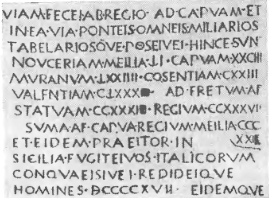 VIAM·FECEI·AB·REGIO·AD·CAPVAM·ET
IN·EA·VIA·PONTEIS·OMNEIS·MILIARIOS
TABELARIOSQVE·POSEIVEI·HINCE·SVN
NOVCERIAM·MEILIA·LI·CAPVAM·XXCIII
MVRANVM·LXXIIII·COSENTIAM·CXXIII
VALENTIAM·CLXXX·AD·FRETVM·AD
STATVAM·CCXXXI·REGIVM·CCXXXVI
SVMA·AF·CAPVA·REGIVM·MEILIA·CCC
ET·EIDEM·PRAETOR·IN XXI
SICILIA·FVGITEIVOS·ITALICORVM
CONQVAEISIVEI·REDIDEIQVE
HOMINES·DCCCCXVII·EIDEMQVE